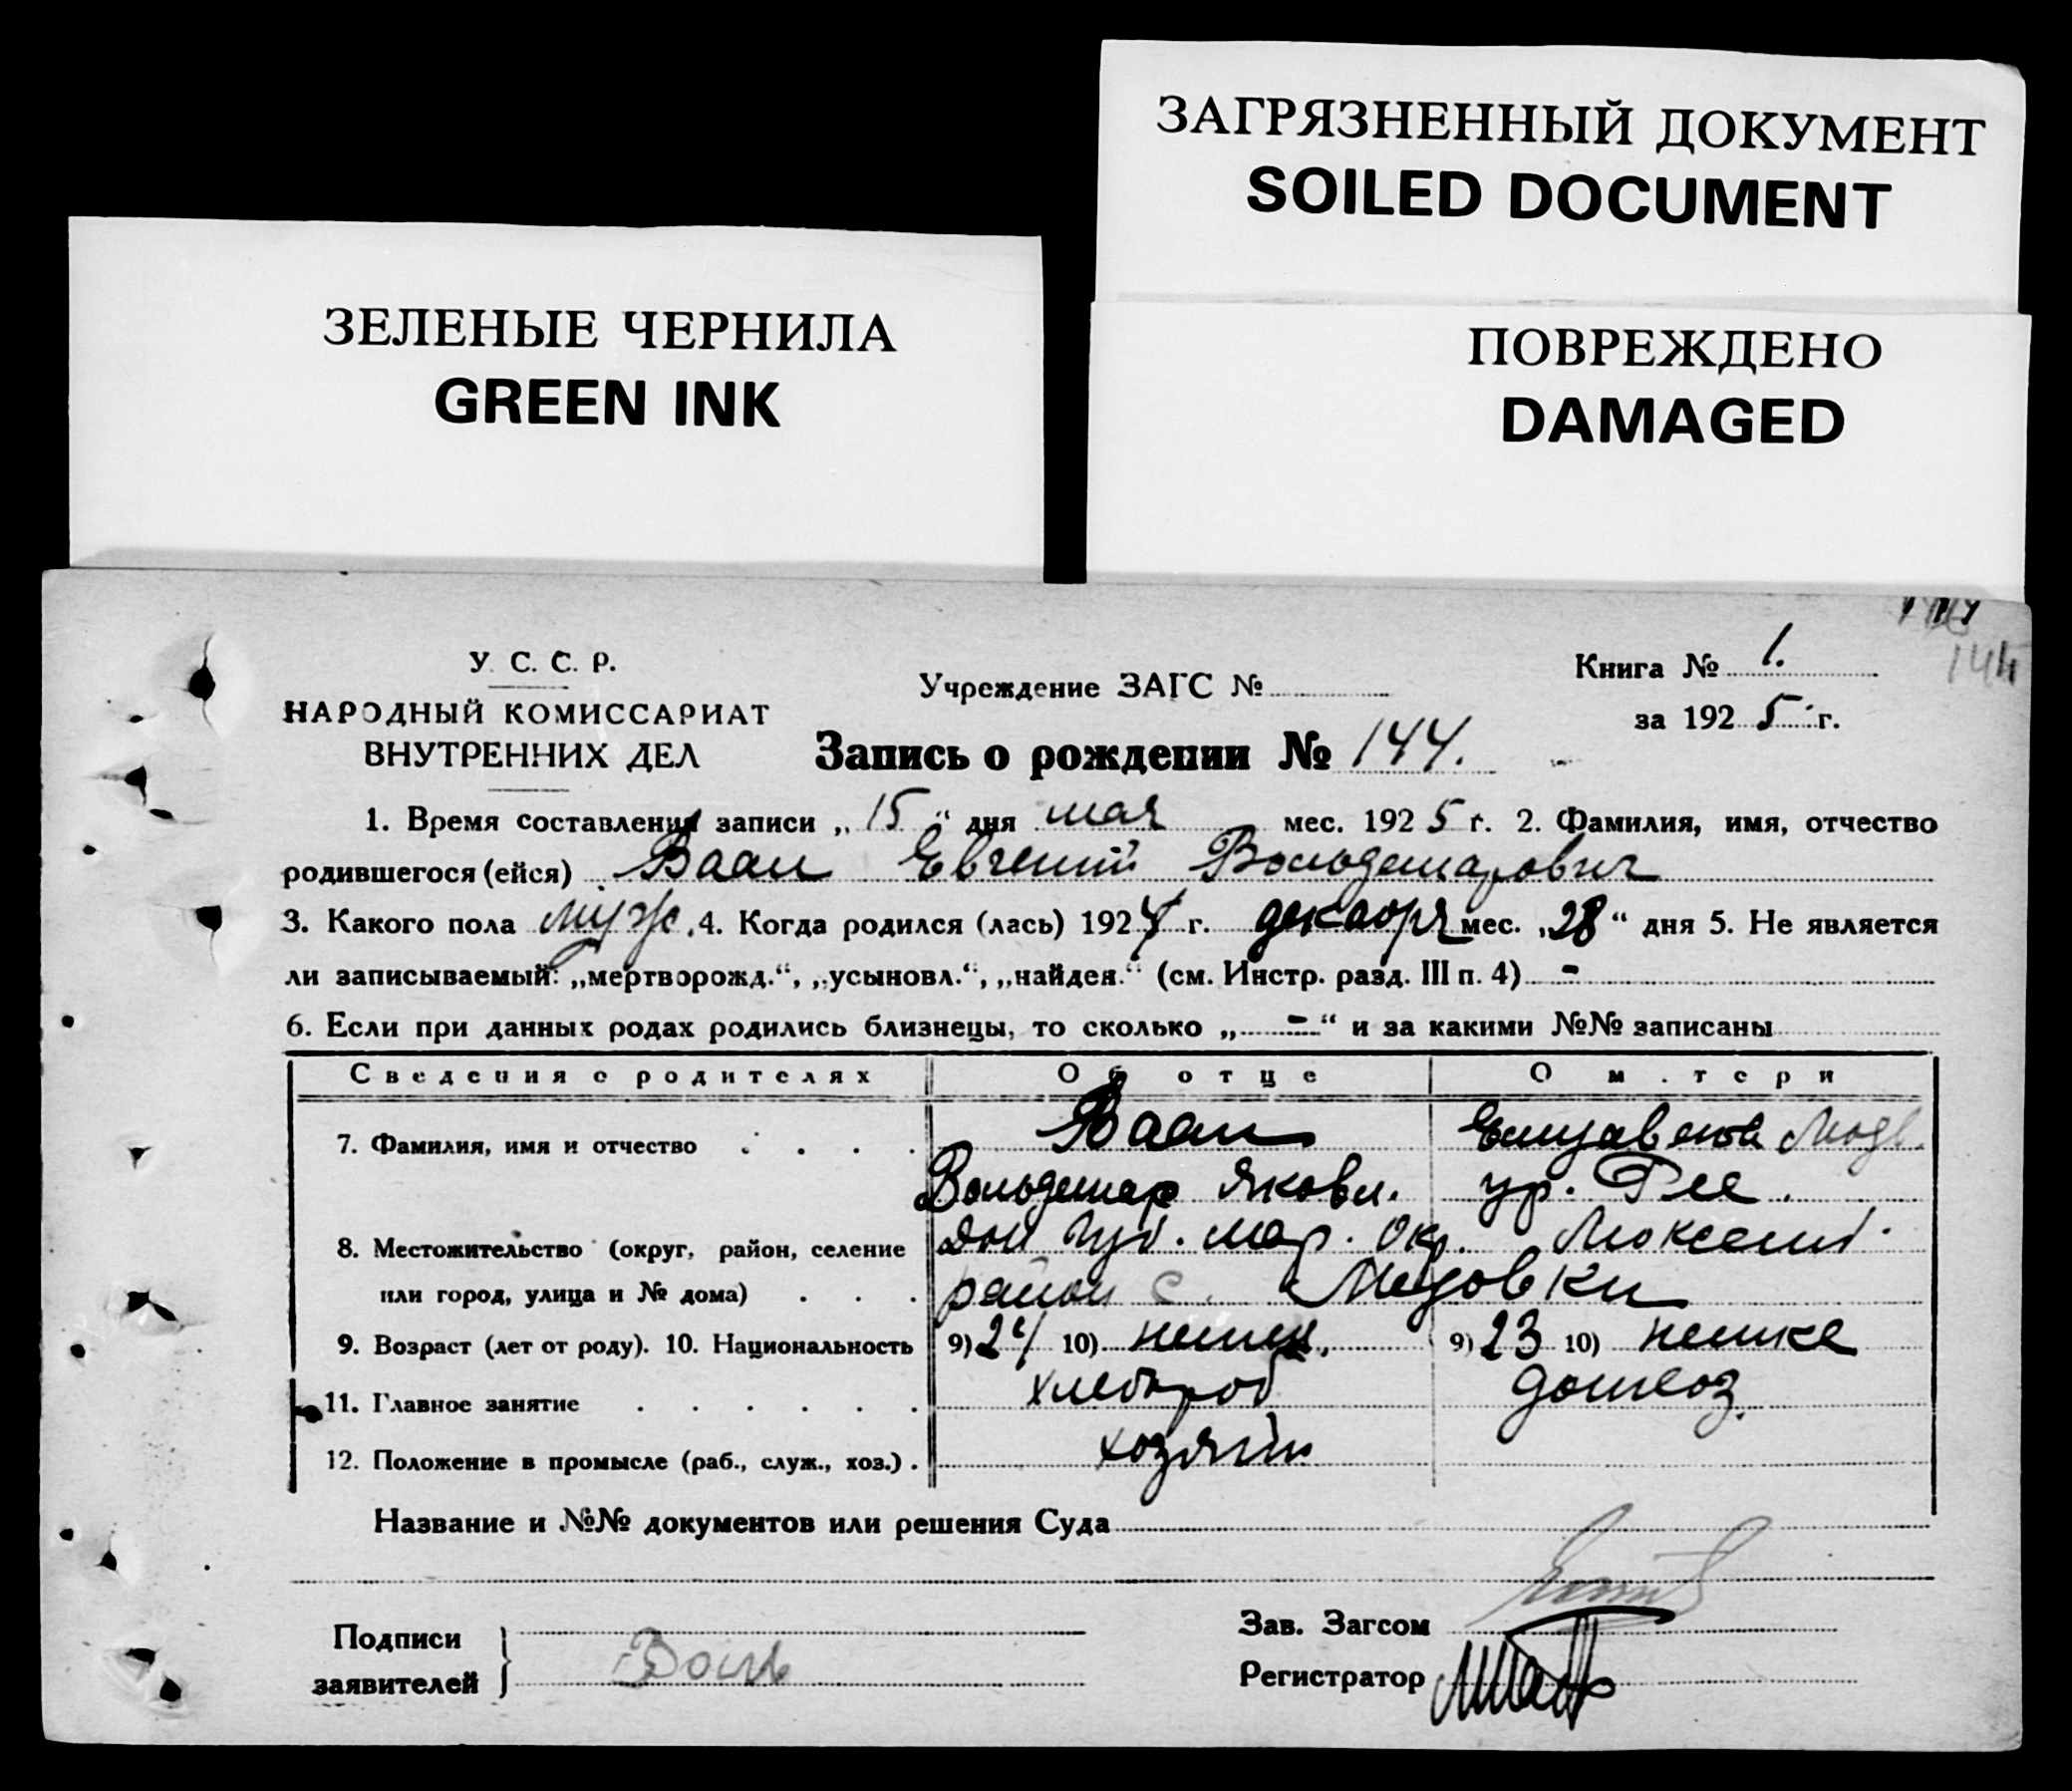 ЗАГРЯЗНЕННЫЙ ДОКУМЕНТ
SOILED DOCUMENT
ЗЕЛЕНЫЕ ЧЕРНИЛА
GREEN INK
ПОВРЕЖДЕНО
DAMAGED
У. С. С. Р.
НАРОДНЫЙ КОМИССАРИАТ
ВНУТРЕННИХ ДЕЛ
Учреждение ЗАГС №
Книга № 1.
за 1925 г.
144
Запись о рождении № 144.
1. Время составления записи „15“ дня мая мес. 1925 г. 2. Фамилия, имя, отчество
родившегося (ейся) Ваал Евгений Вольдемарович
3. Какого пола муж. 4. Когда родился (лась) 1924 г. декабря мес. „28“ дня 5. Не является
ли записываемый: „мертворожд.“, „усыновл.“, „найден.“ (см. Инстр. разд. III п. 4) -
6. Если при данных родах родились близнецы, то сколько „-“ и за какими №№ записаны
Сведения о родителях Об отце О матери
7. Фамилия, имя и отчество Ваал Елизавета
Вольдемар Яковл. ур. Рее.
8. Местожительство (округ, район, селение Дон Губ. Мар. Окр. Люксемб.
или город, улица и № дома) район с. Медовки
9. Возраст (лет от роду). 10. Национальность 9) 24 10) немец. 9) 23 10) немка
11. Главное занятие хлебороб домхоз.
12. Положение в промысле (раб., служ., хоз.) хозяин
Название и №№ документов или решения Суда
Подписи
заявителей
Зав. Загсом
Регистратор